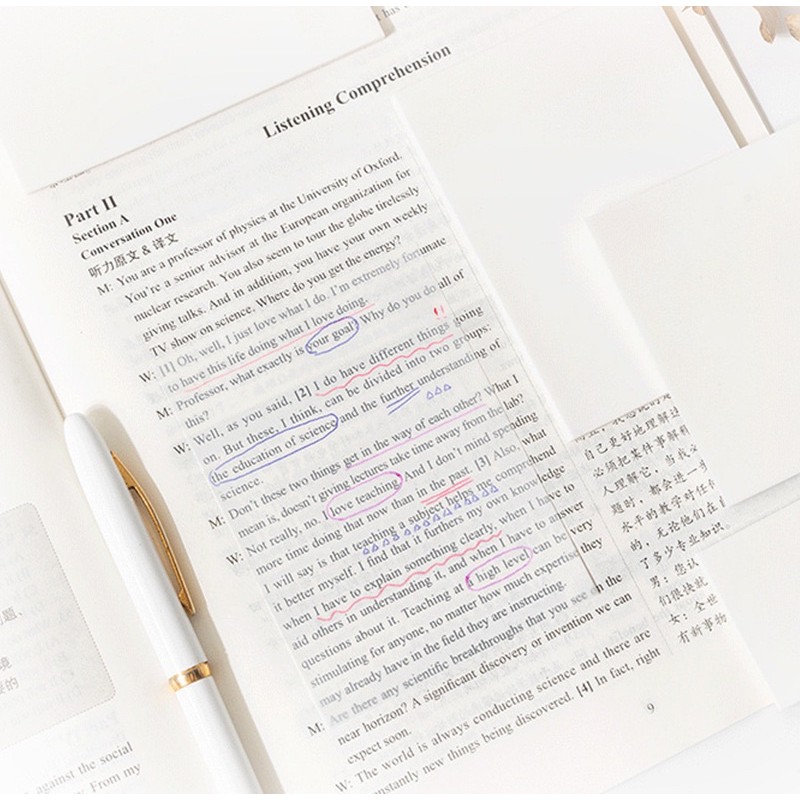 Listening Comprehension
Part II
Section A
Conversation One
听力原文 & 译文
M: You are a professor of physics at the University of Oxford.
You're a senior advisor at the European organization for
nuclear research. You also seem to tour the globe tirelessly
giving talks. And in addition, you have your own weekly
TV show on science. Where do you get the energy?
W: [1] Oh, well, I just love what I do. I'm extremely fortunate
to have this life doing what I love doing.
M: Professor, what exactly is your goal? Why do you do all of
this?
W: Well, as you said, [2] I do have different things going
on. But these, I think, can be divided into two groups:
the education of science and the further understanding of
science.
M: Don't these two things get in the way of each other? What I
mean is, doesn't giving lectures take time away from the lab?
W: Not really, no. I love teaching. And I don't mind spending
more time doing that now than in the past. [3] Also, what
I will say is that teaching a subject helps me comprehend
it better myself. I find that it furthers my own knowledge
when I have to explain something clearly, when I have to
aid others in understanding it, and when I have to answer
questions about it. Teaching at a high level can be very
stimulating for anyone, no matter how much expertise they
may already have in the field they are instructing.
M: Are there any scientific breakthroughs that you see on the
near horizon? A significant discovery or invention we can
expect soon.
W: The world is always conducting science and there are
constantly new things being discovered. [4] In fact, right
9
自己更好地理解
必须把某件事解释
人理解它，当我必
题时，都会进一步
水平的教学时任
的，无论他们在
了多少专业知识。
男：您认
们很快就
女：全世
有新事物
against the social
From my